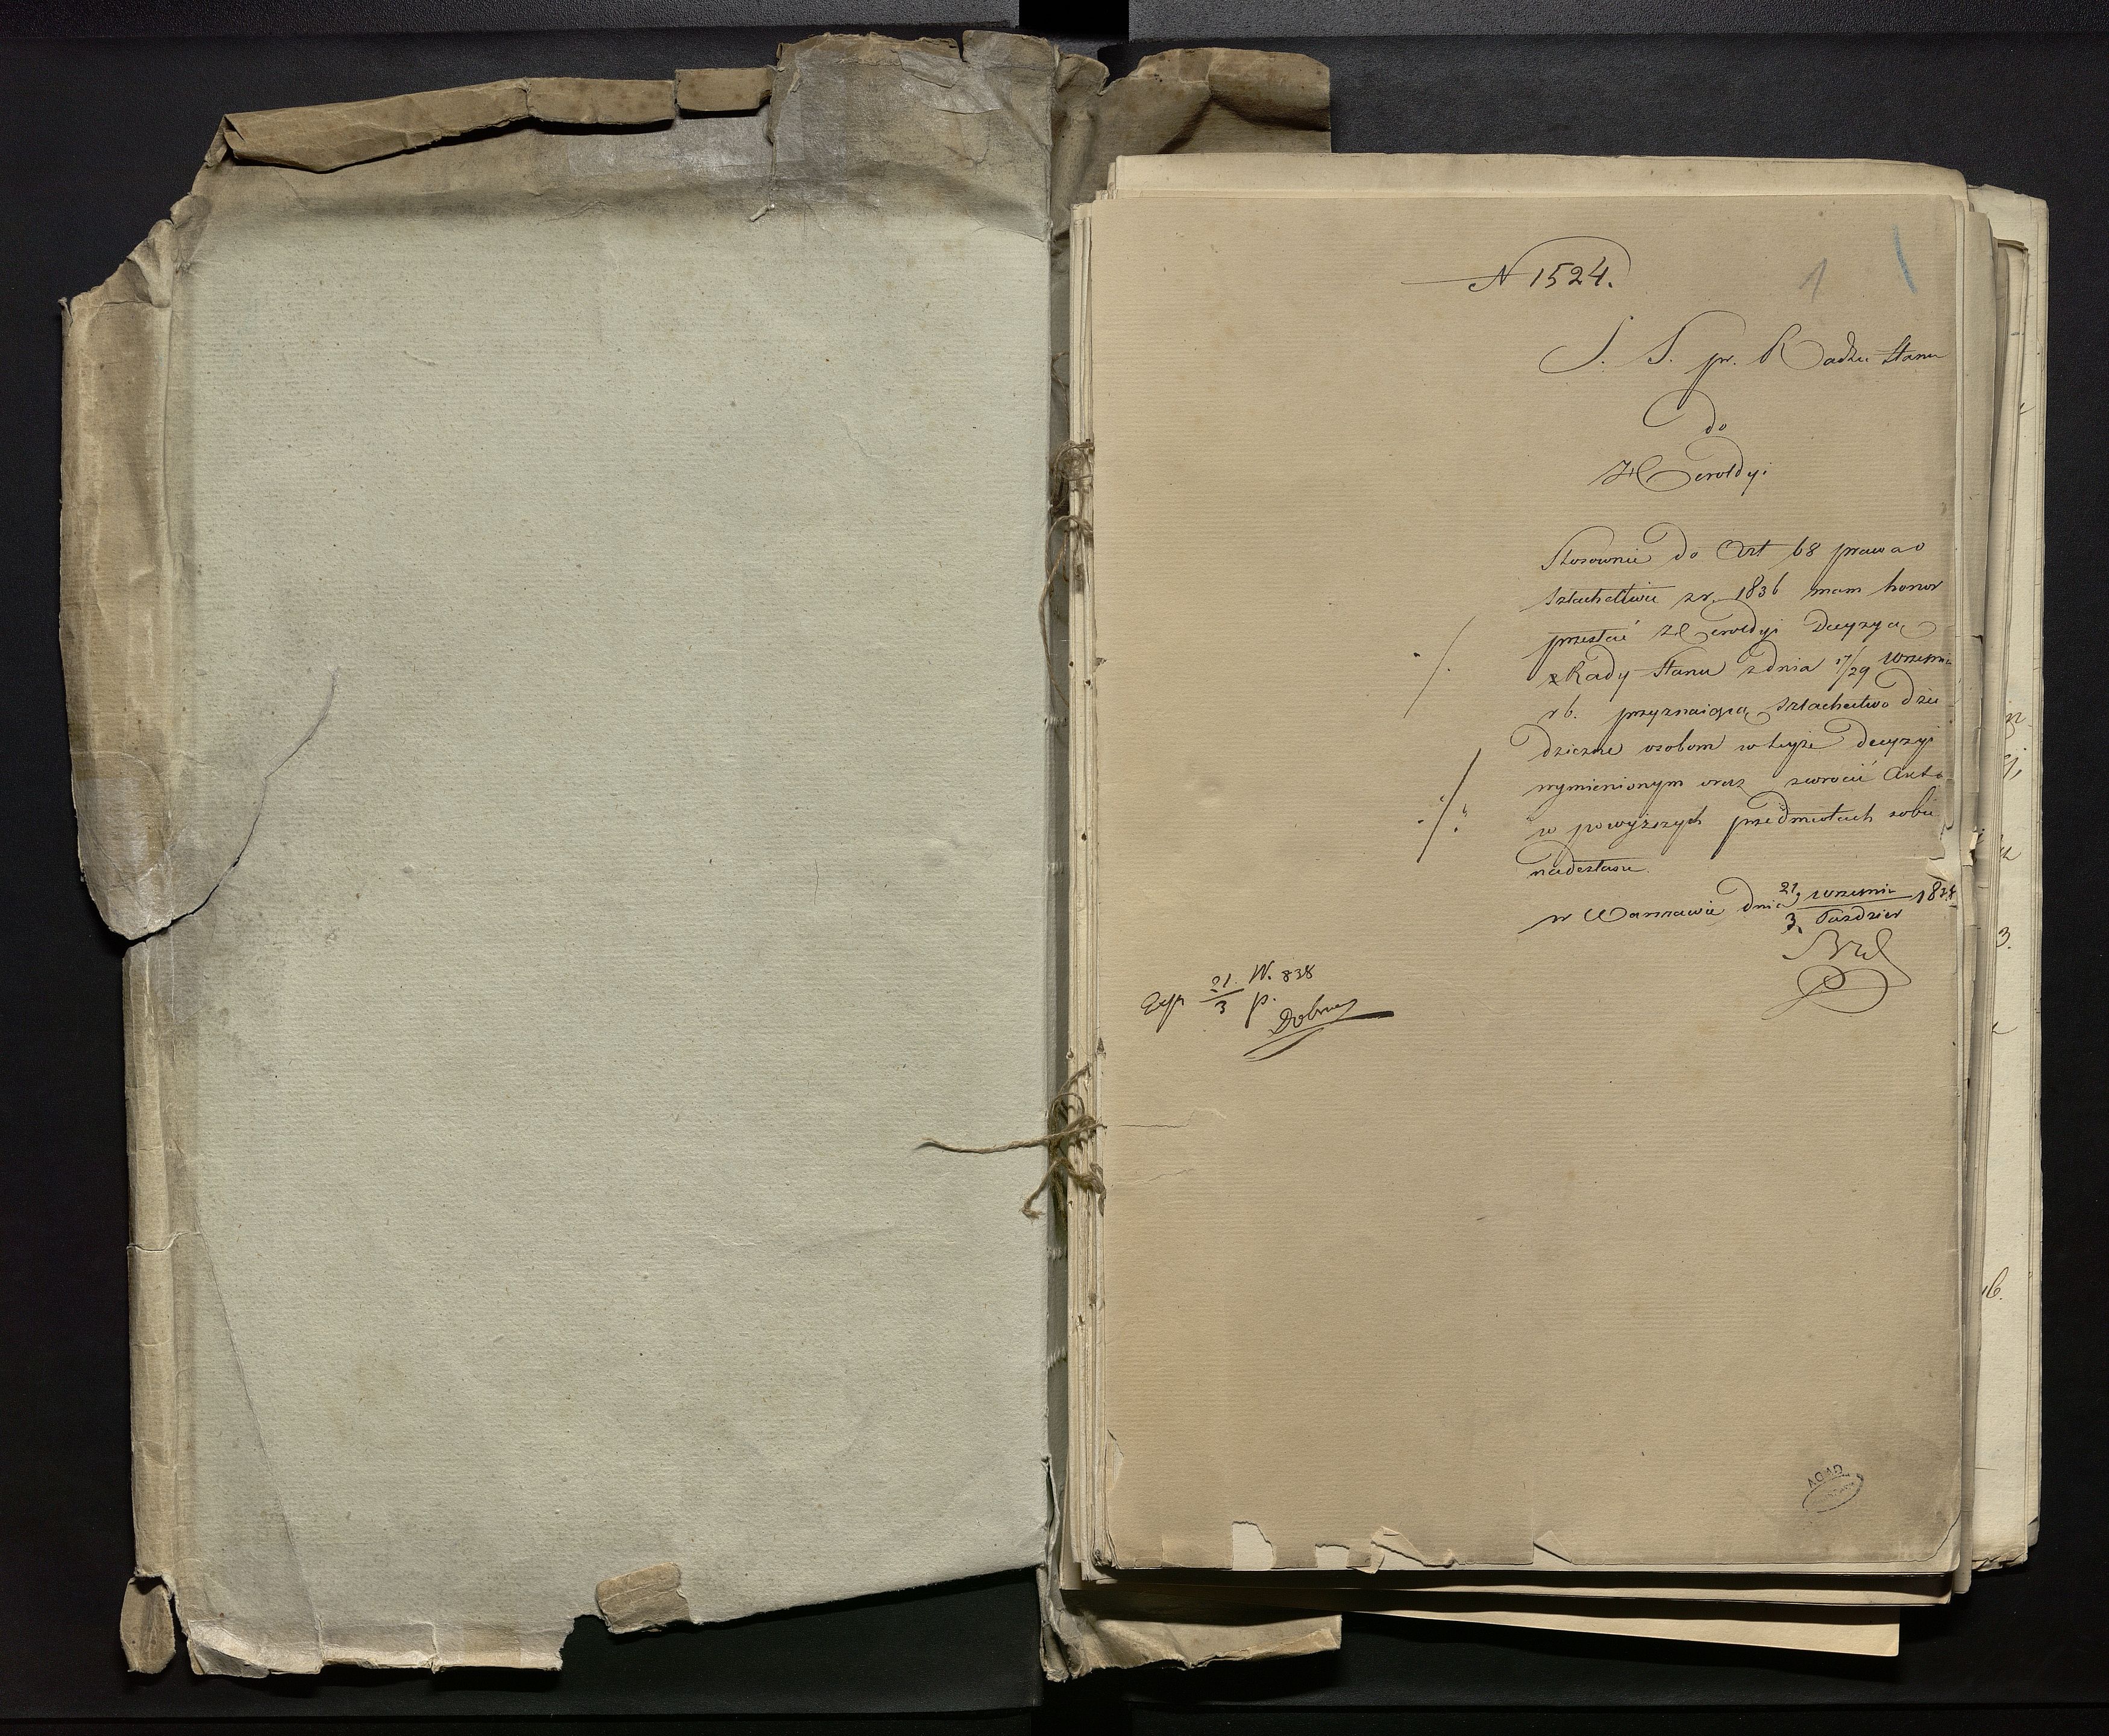 N 1524.
1
S. S. pr. Radzie Stanu
do
Heroldyi
Stosownie do Art 68 prawa o
szlachectwie z r. 1836 mam honor
przesłać Heroldyi Decyzyą
Rady Stanu z dnia 17/29 Wrześni
r b. przyznaiącą szlachectwo dzie
dziczne osobom w teyże decyzyi
wymienionym oraz zwrócić Akta
w powyższych przedmiotach sobie
nadesłane.
w Warszawie dnia 21 Wrześnie / 3. Paździer 1838
Exp 21. W. 838
3 p.
AGAD